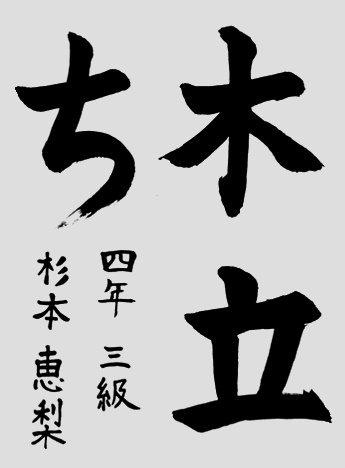 木立
ち
四年 三級
杉本 恵梨